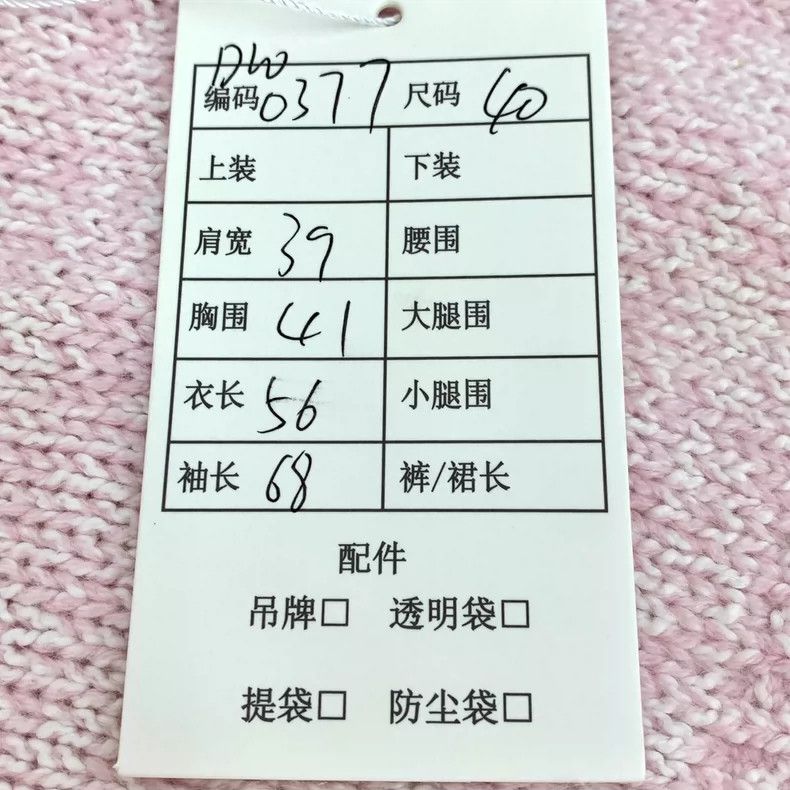 DW
编码 0377 尺码 40
上装 下装
肩宽 39 腰围
胸围 41 大腿围
衣长 56 小腿围
袖长 68 裤/裙长
配件
吊牌□ 透明袋□
提袋□ 防尘袋□